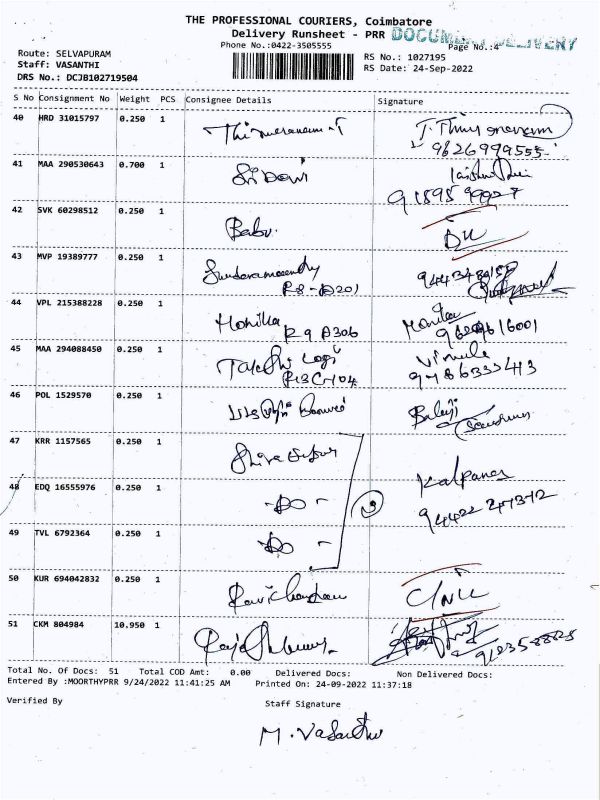 THE PROFESSIONAL COURIERS, Coimbatore
Delivery Runsheet - PRR DOCUMENT DELIVERY
Phone No.:0422-3505555 Page No.:4
Route: SELVAPURAM RS No.: 1027195
Staff: VASANTHI RS Date: 24-Sep-2022
DRS No.: DCJB102719504
S No Consignment No Weight PCS Consignee Details Signature
40 HRD 31015797 0.250 1
9826999555
41 MAA 290530643 0.700 1 Sri Devi
42 SVK 60298512 0.250 1 Babu.
43 MVP 19389777 0.250 1 Sundaramoorthy
44 VPL 215388228 0.250 1 Monika R9 A306 Monika
45 MAA 294088450 0.250 1 Vimala
9786333413
46 POL 1529570 0.250 1 Balaji
47 KRR 1157565 0.250 1
48 EDQ 16555976 0.250 1 - Do - Kalpana
49 TVL 6792364 0.250 1 - Do -
50 KUR 694042832 0.250 1 Ravichandran
51 CKM 804984 10.950 1
Total No. Of Docs: 51 Total COD Amt: 0.00 Delivered Docs: Non Delivered Docs:
Entered By :MOORTHYPRR 9/24/2022 11:41:25 AM Printed On: 24-09-2022 11:37:18
Verified By Staff Signature
M. Vasanthi